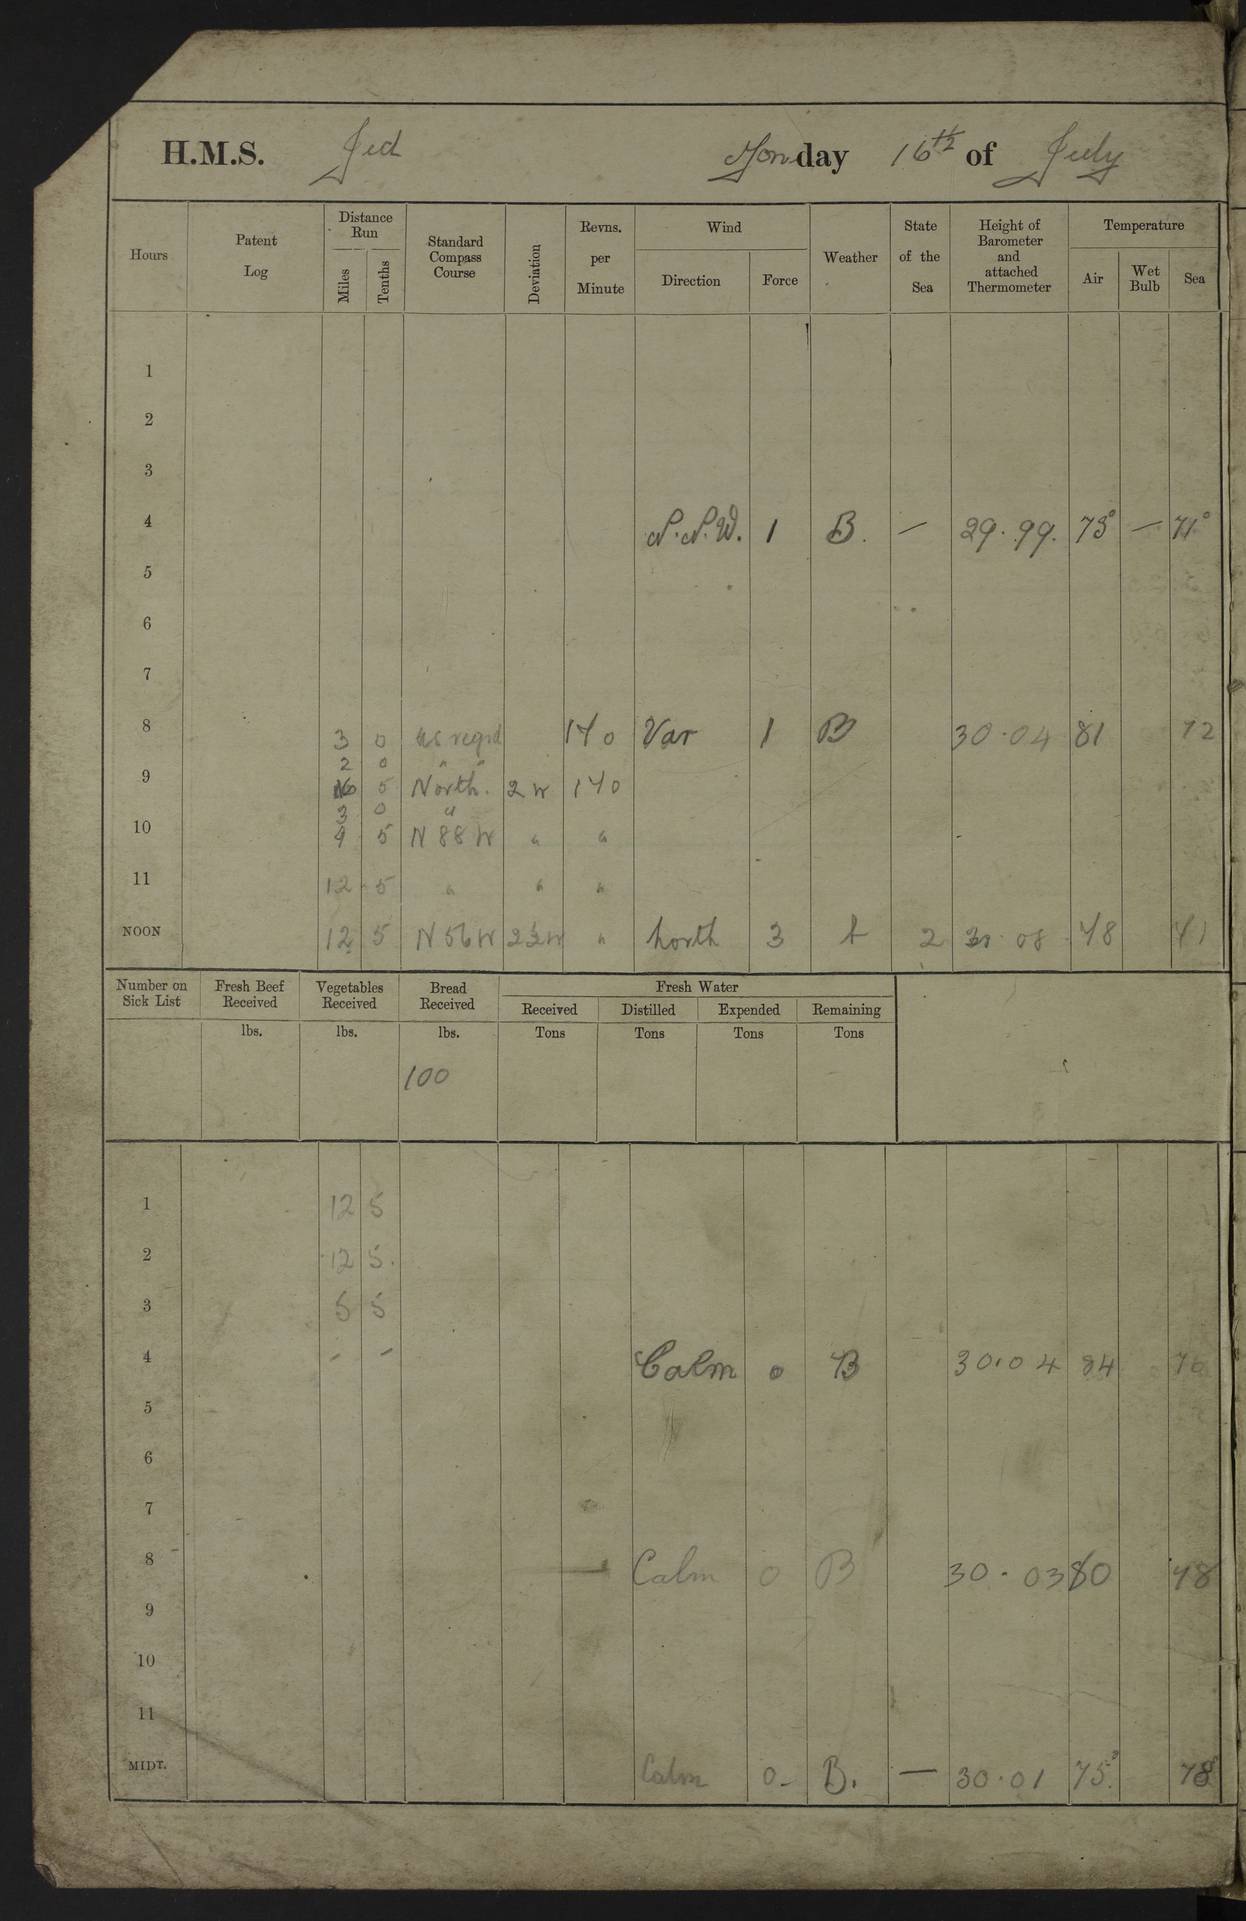 H.M.S. Jed Monday 16th of July
Hours Patent Log Distance Run Miles Tenths Standard Compass Course Deviation Revns. per Minute Wind Direction Force Weather State of the Sea Height of Barometer and attached Thermometer Temperature Air Wet Bulb Sea
1
2
3
4 N.N.W. 1 B. — 29.99. 73° — 71°
5
6
7
8 3 0 as reqd 140 Var 1 B 30.04 81 72
2 0 " "
9 5 North. 2 W 140
3 0 "
10 4 5 N 88 W " "
11 12 5 " " "
NOON 12 5 N 56 W 2½ W " North 3 b 2 30.08 78 71
Number on Sick List Fresh Beef Received Vegetables Received Bread Received Fresh Water
Received Distilled Expended Remaining
lbs. lbs. lbs. Tons Tons Tons Tons
100
1 12 5
2 12 5.
3 5 5
4 - - Calm 0 B 30.04 84 76
5
6
7
8 Calm 0 B 30.03 80 78
9
10
11
MIDT. Calm 0 - B. — 30.01 75° 78°